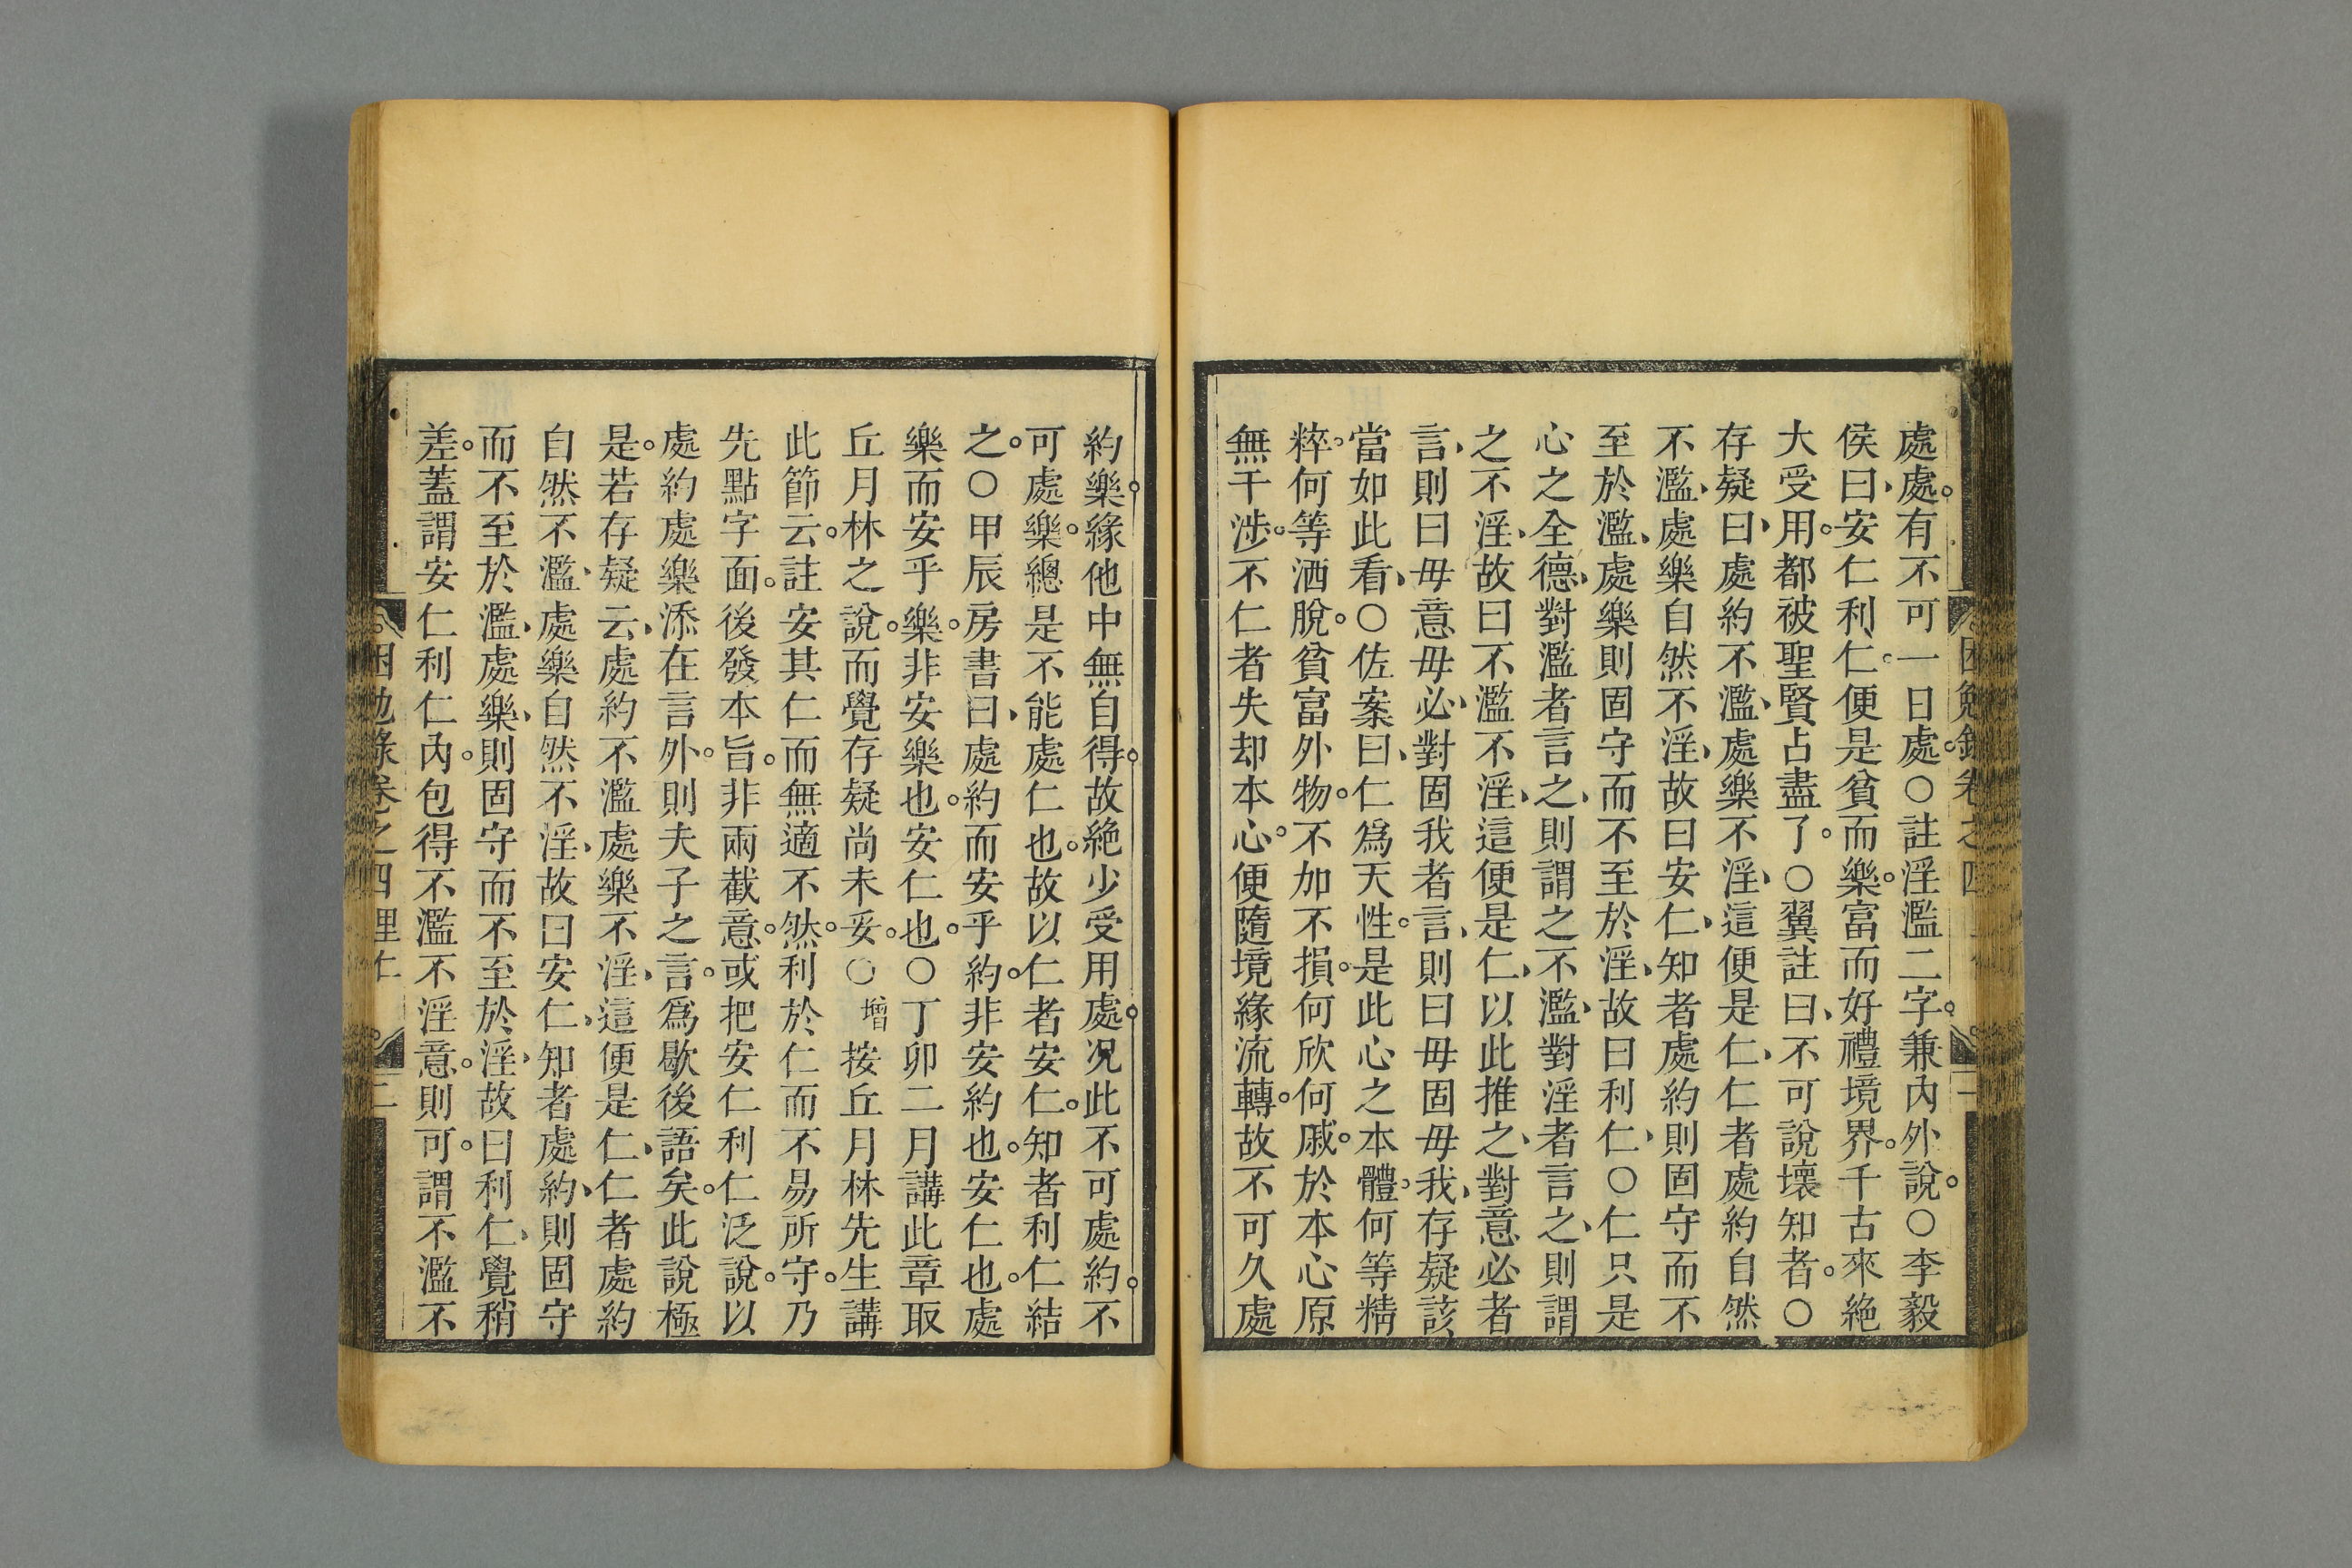 處處有不可一日處○註淫濫二字兼內外說○李毅
侯曰安仁利仁便是貧而樂富而好禮境界千古來絶
大受用都被聖賢占盡了○翼註曰不可說壞知者○
存疑曰處約不濫處樂不淫這便是仁仁者處約自然
不濫處樂自然不淫故曰安仁知者處約則固守而不
至於濫處樂則固守而不至於淫故曰利仁○仁只是
心之全德對濫者言之則謂之不濫對淫者言之則謂
之不淫故曰不濫不淫這便是仁以此推之對意必者
言則曰毋意毋必對固我者言則曰毋固毋我存疑該
當如此看○佐案曰仁爲天性是此心之本體何等精
粹何等洒脫貧富外物不加不損何欣何戚於本心原
無干涉不仁者失却本心便隨境緣流轉故不可久處
約樂緣他中無自得故絶少受用處况此不可處約不
可處樂總是不能處仁也故以仁者安仁知者利仁結
之○甲辰房書曰處約而安乎約非安約也安仁也處
樂而安乎樂非安樂也安仁也○丁卯二月講此章取
丘月林之說而覺存疑尚未妥○增按丘月林先生講
此節云註安其仁而無適不然利於仁而不易所守乃
先點字面後發本旨非兩截意或把安仁利仁泛說以
處約處樂添在言外則夫子之言爲歇後語矣此說極
是若存疑云處約不濫處樂不淫這便是仁仁者處約
自然不濫處樂自然不淫故曰安仁知者處約則固守
而不至於濫處樂則固守而不至於淫故曰利仁覺稍
差蓋謂安仁利仁內包得不濫不淫意則可謂不濫不
困勉錄卷之四 里仁 二